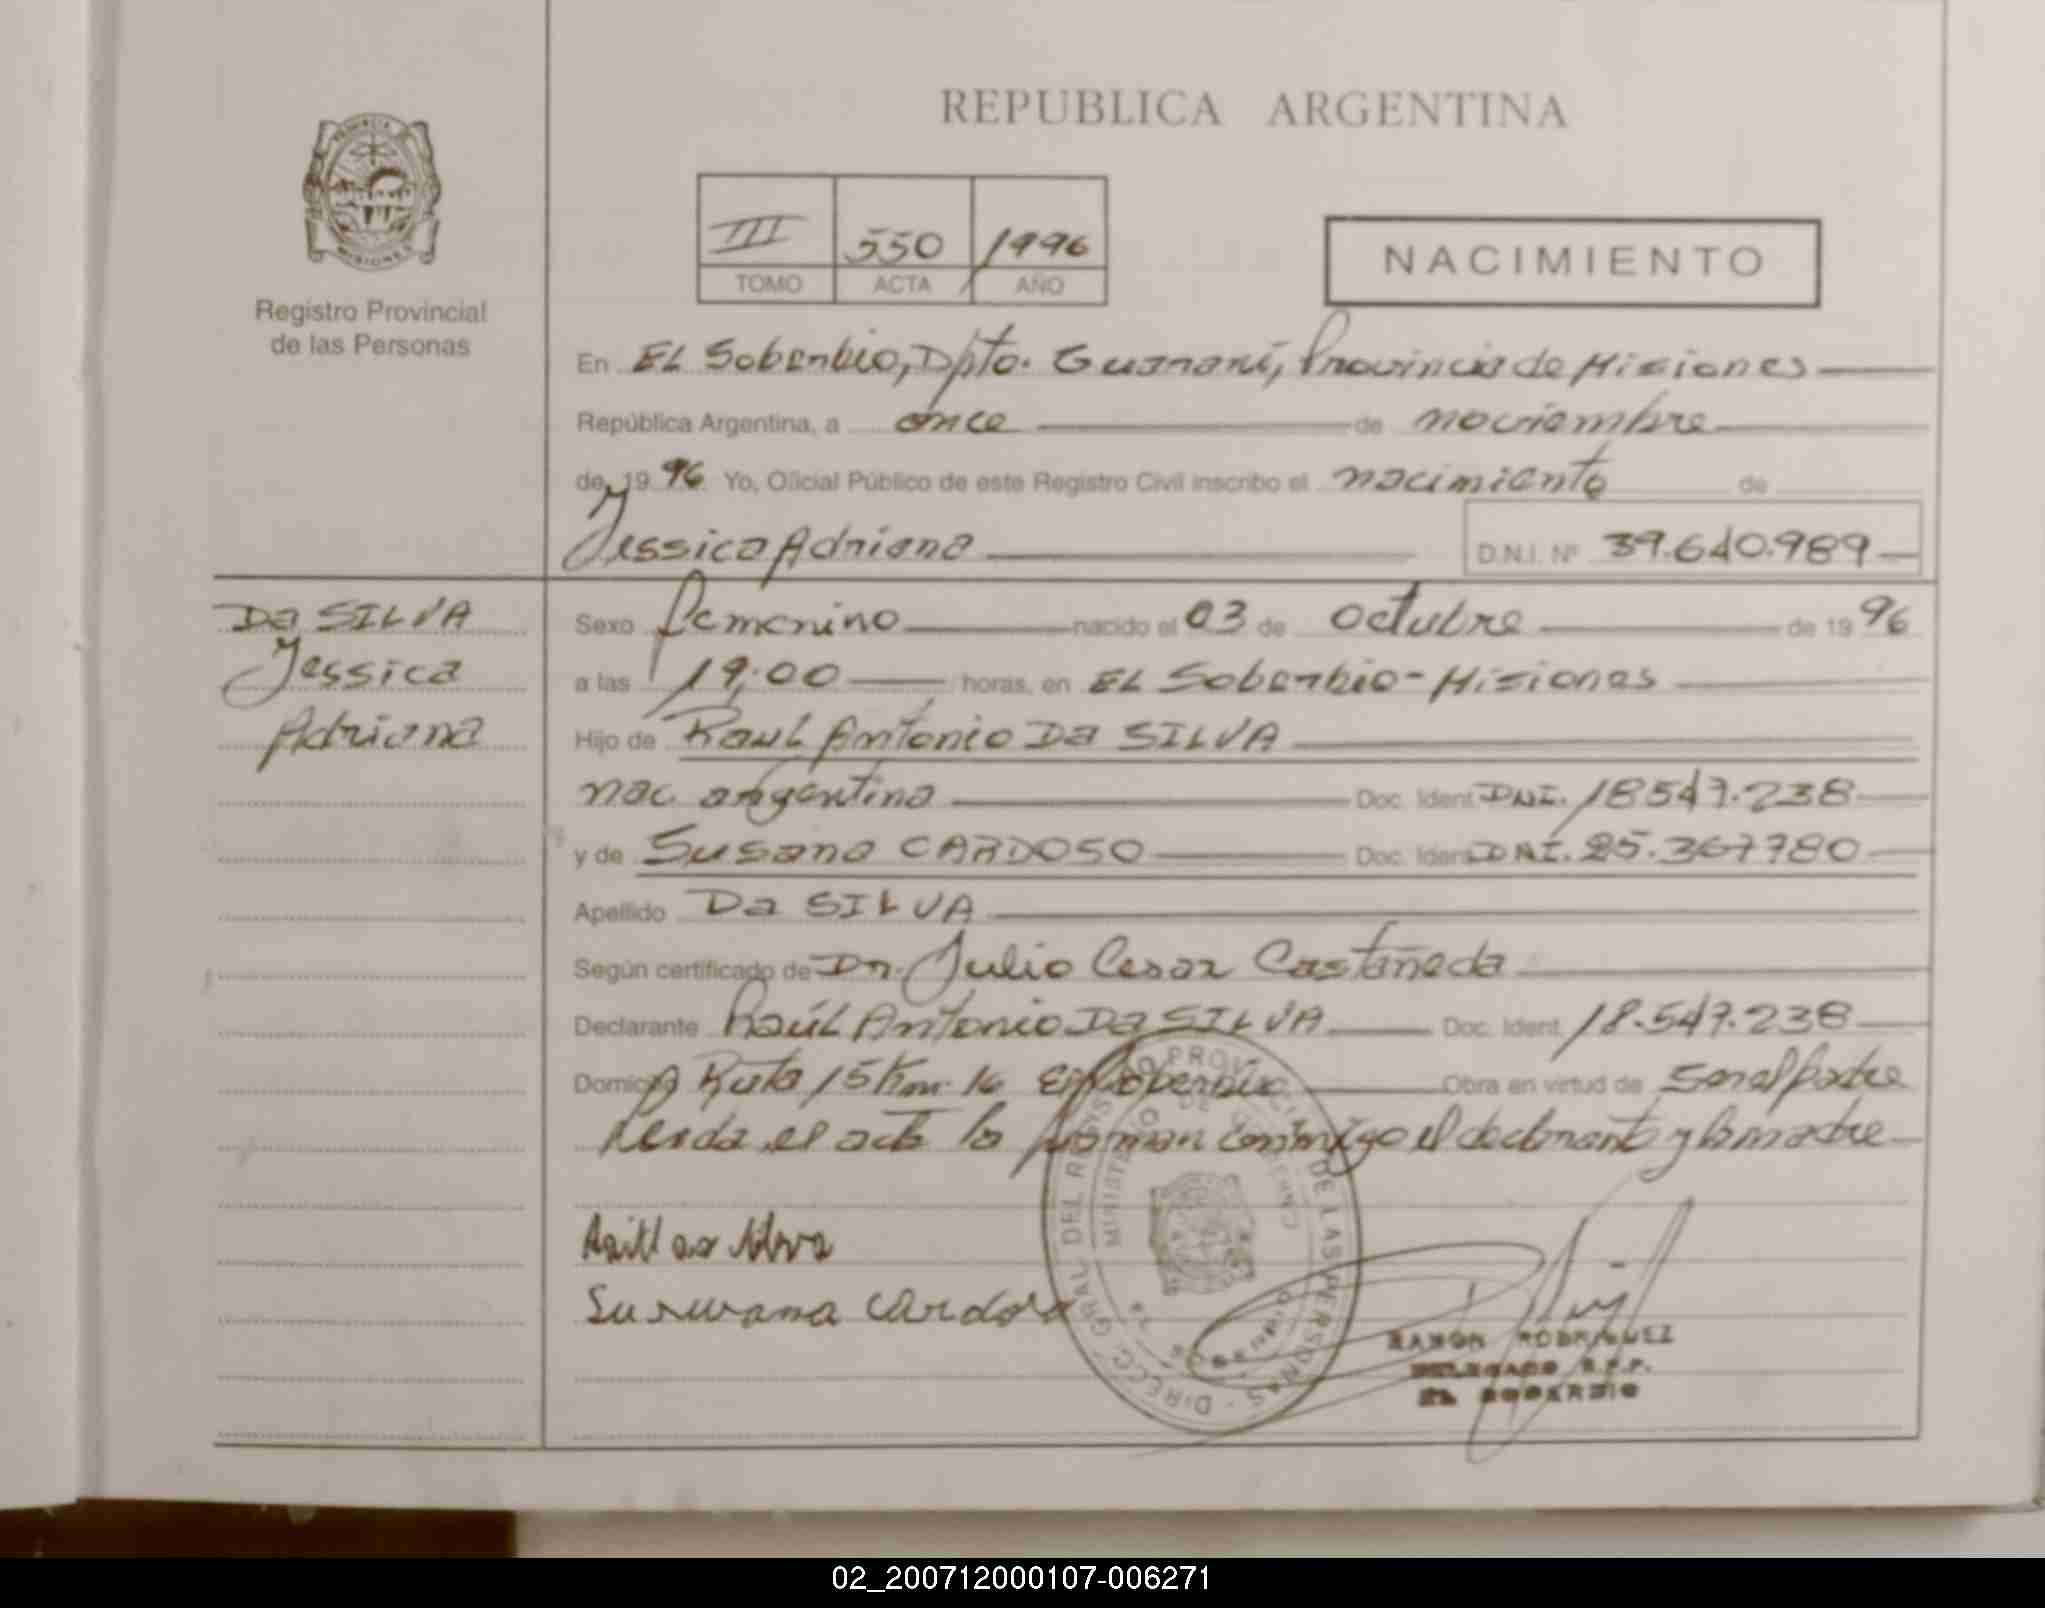 REPUBLICA ARGENTINA
PROVINCIA DE
MISIONES
Registro Provincial
de las Personas
III 550 1996
TOMO ACTA AÑO
NACIMIENTO
En El Soberbio, Dpto. Guaraní, Provincia de Misiones
República Argentina, a once de noviembre
de 1996 Yo, Oficial Público de este Registro Civil inscribo el nacimiento de
Jessica Adriana D.N.I. Nº 39.640.989
Da SILVA
Jessica
Adriana
Sexo femenino nacido el 03 de Octubre de 1996
a las 19:00 horas, en El Soberbio - Misiones
Hijo de Raul Antonio Da SILVA
nac. argentina Doc. Ident. DNI. 18547.238
y de Susana CARDOSO Doc. Ident. DNI. 25.367780
Apellido Da SILVA
Según certificado de Dr. Julio Cesar Castañeda
Declarante Raúl Antonio Da SILVA Doc. Ident. 18.547.238
Domicilio Ruta 15 Km. 16 El Soberbio Obra en virtud de Ser el Padre
Leida el acta la firman conmigo el declarante y la madre
DIRECC. GRAL DEL REGISTRO PROVINCIAL DE LAS PERSONAS
MINISTERIO DE GOBIERNO
Cardoso
RAMON RODRIGUEZ
DELEGADO R.P.P.
EL SOBERBIO
02_200712000107-006271